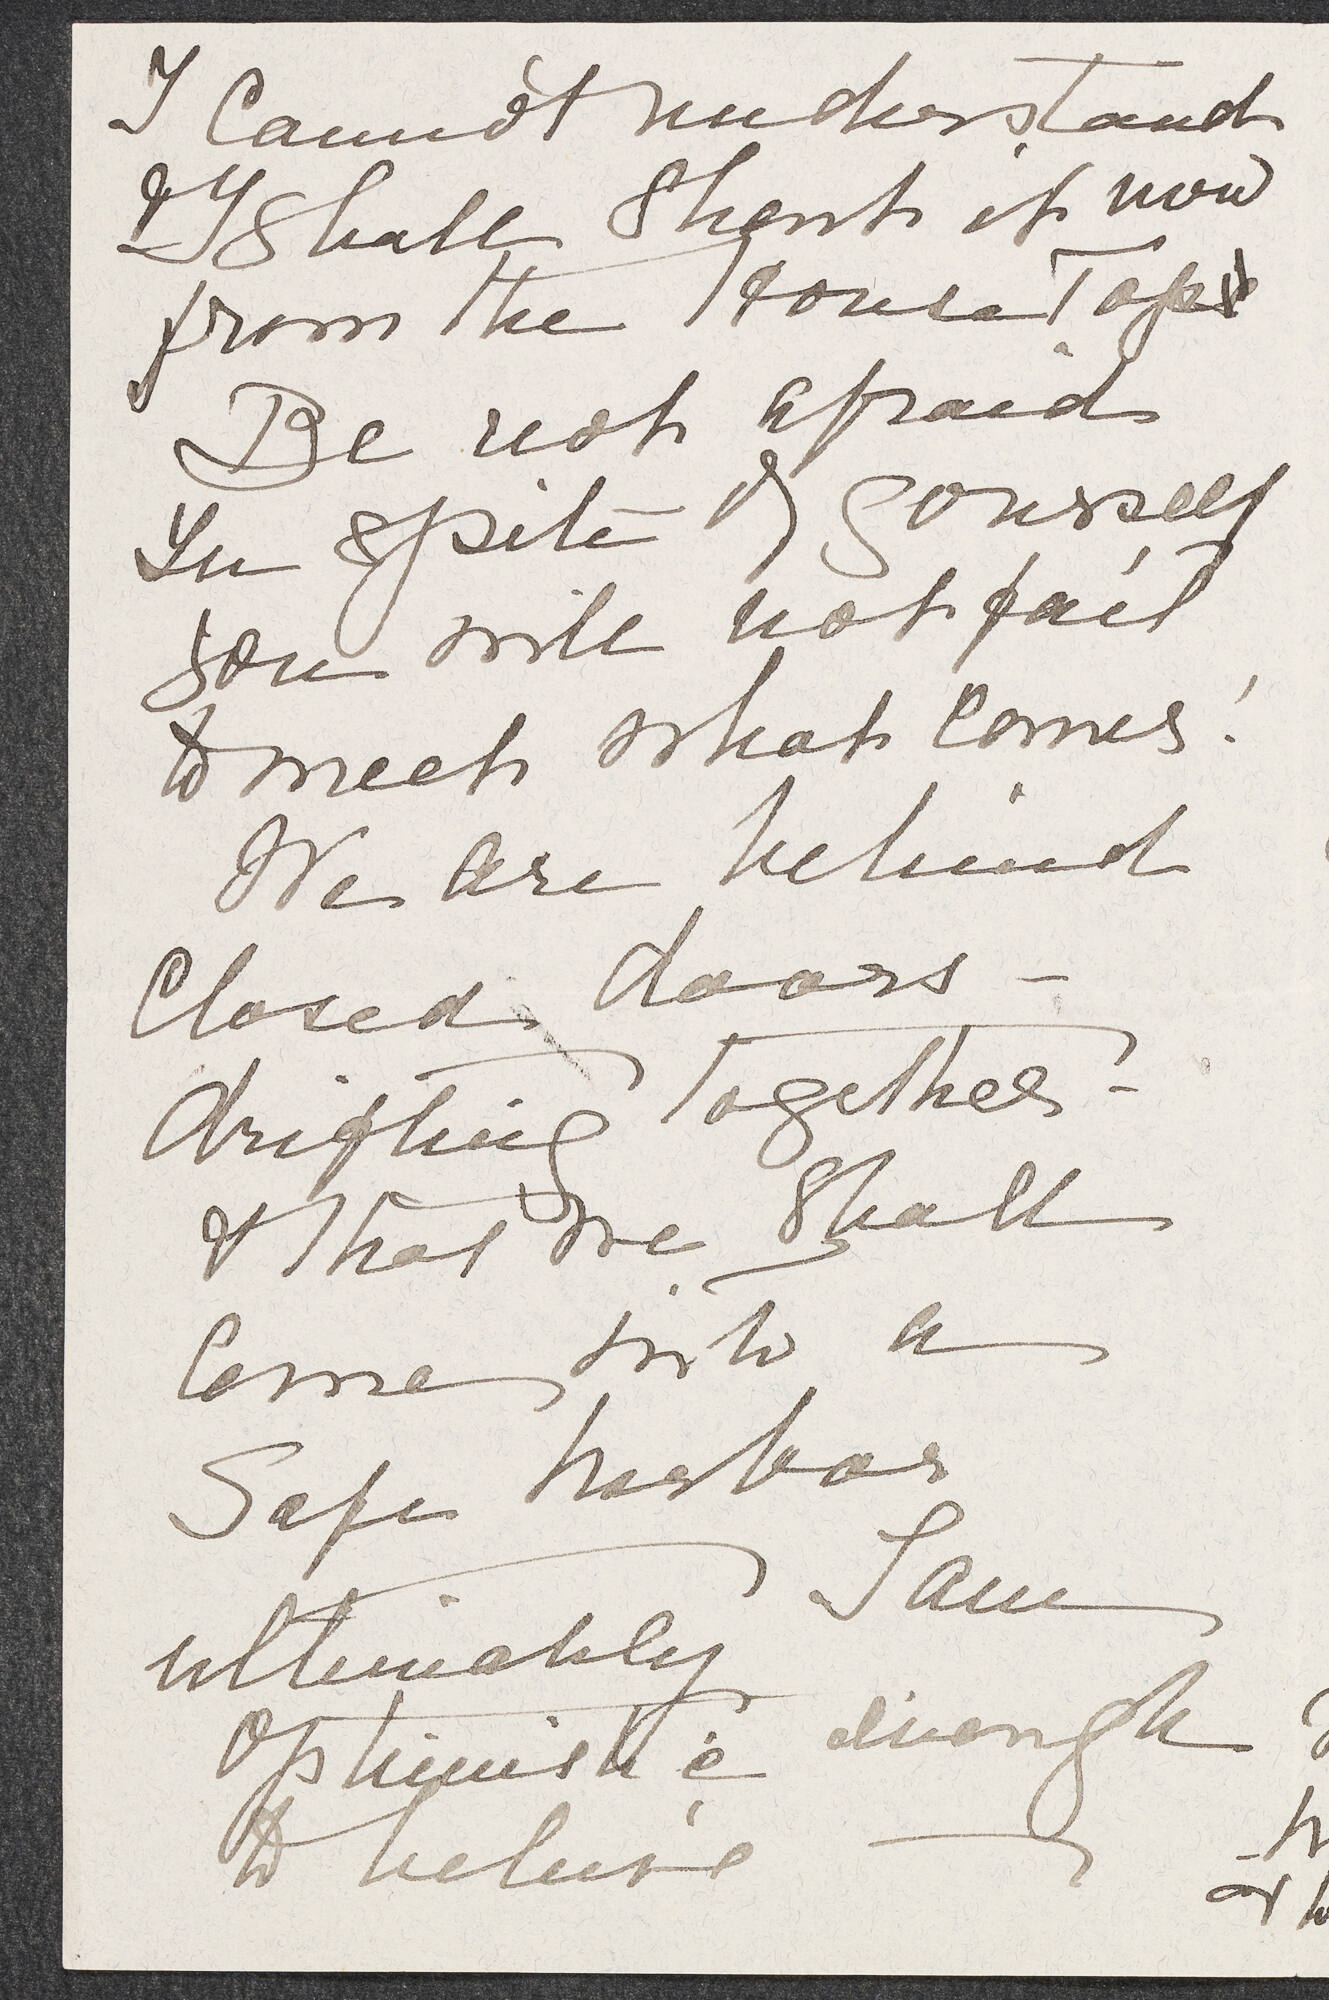 I Cannot understand
& I shall Shout it now
from the House Tops
Be not afraid
In spite of yourself
you will not fail
to meet what comes!
We are behind
Closed doors -
drifting together -
& that we shall
Come into a
Safe harbor
ultimately I am
optimistic enough
to believe —